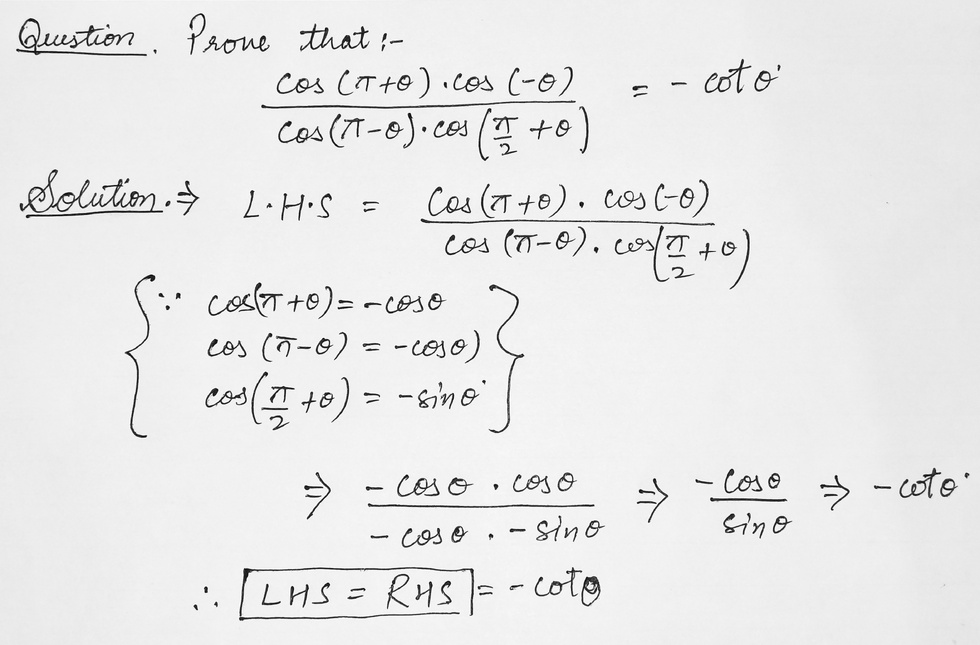 Question. Prove that :-
cos (π+θ) . cos (-θ) / cos(π-θ) . cos (π/2 + θ) = - cot θ
Solution. ⇒ L.H.S = cos (π+θ) . cos (-θ) / cos (π-θ) . cos(π/2 + θ)
{ ∵ cos(π+θ) = - cosθ
cos (π-θ) = -cosθ)
cos(π/2 +θ) = -sinθ }
⇒ - cosθ . cosθ / - cosθ . - sinθ ⇒ - cosθ / sinθ ⇒ - cotθ
∴ LHS = RHS = - cotθ